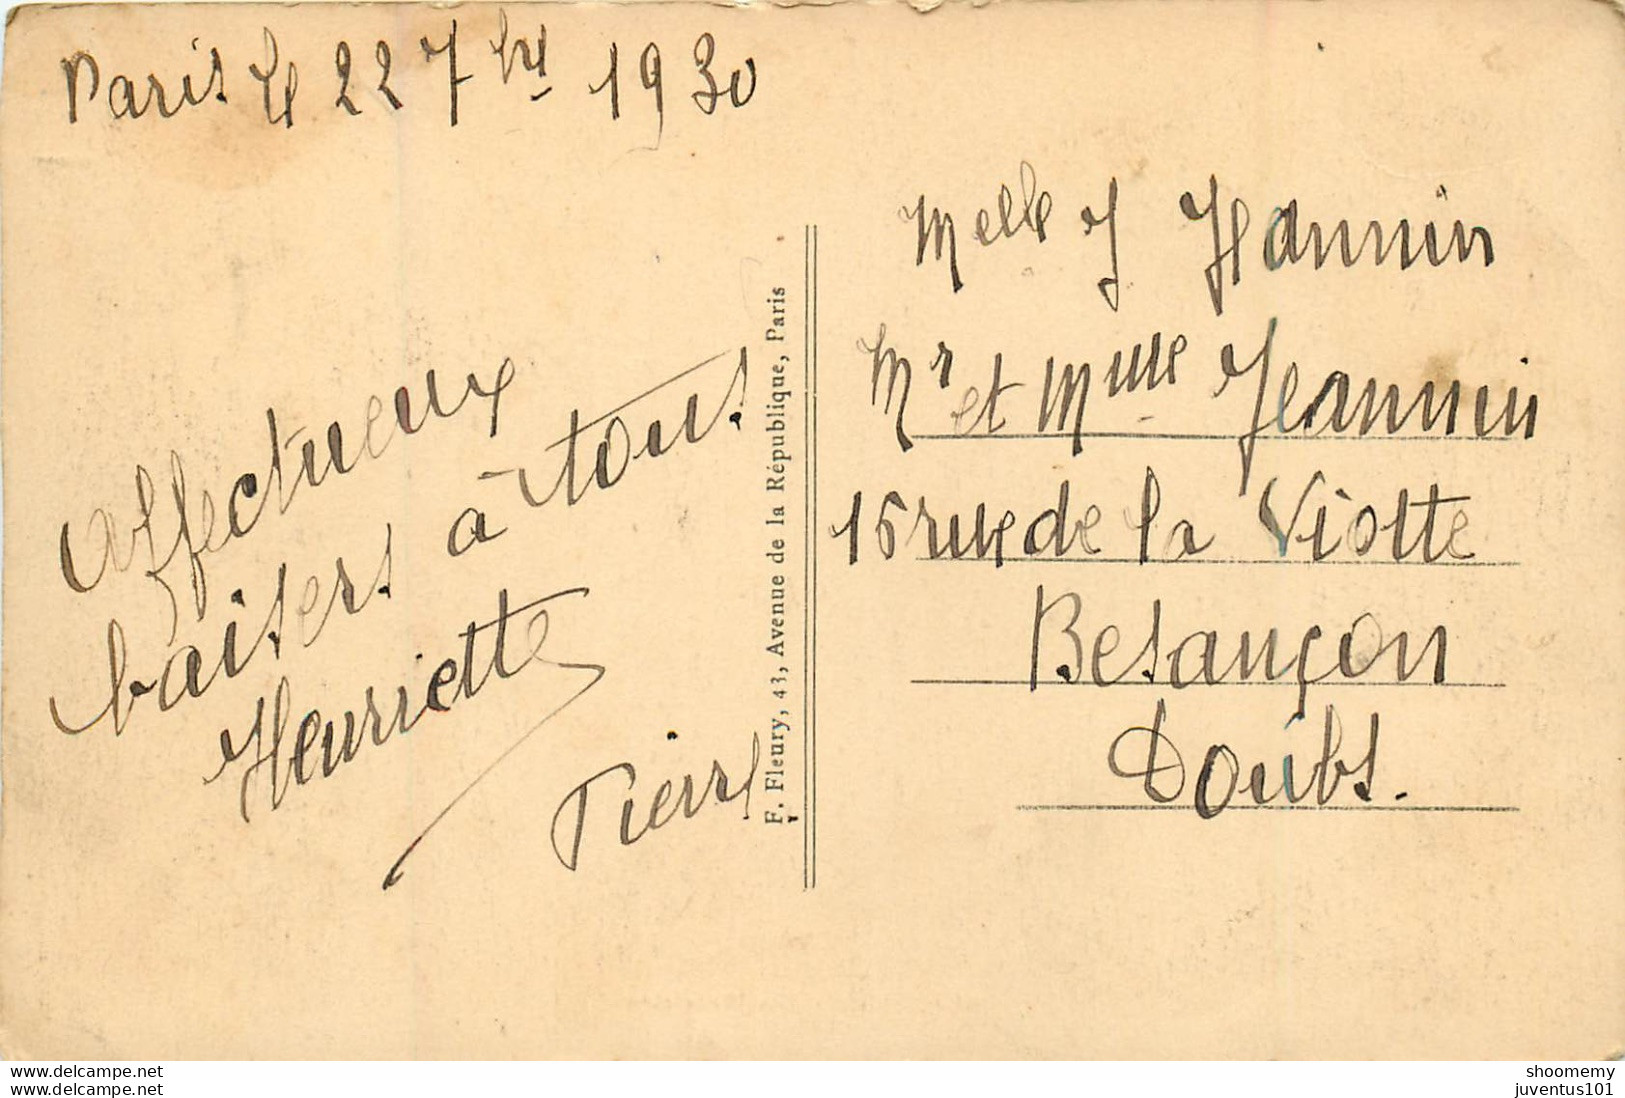 Paris le 22 7bre 1930
Affectueux
baisers à tous
Henriette
Pierre
F. Fleury, 43, Avenue de la République, Paris
Melle J Jeannin
Mr et Mme Jeannin
15 rue de la Viotte
Besançon
Doubs.
www.delcampe.net
www.delcampe.net
shoomemy
juventus101